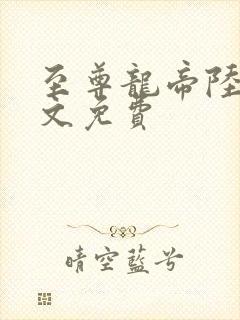 至尊龍帝陸
文免費
晴空藍兮